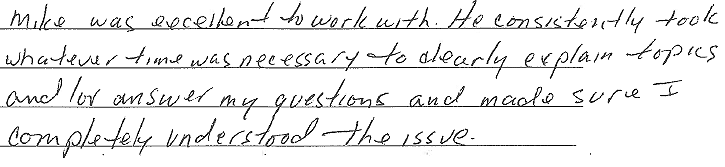 Mike was excellent to work with. He consistently took
whatever time was necessary to clearly explain topics
and/or answer my questions and made sure I
completely understood the issue.